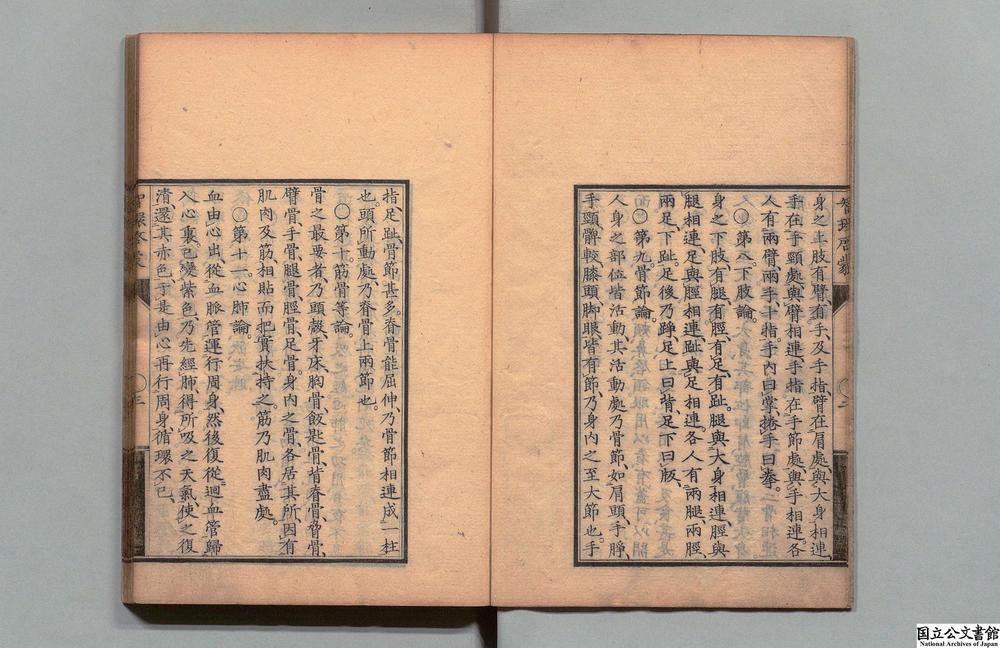 身之上肢有臂、有手、及手指、臂在肩處、與大身相連、
手在手頸處、與臂相連、手指在手節處、與手相連。各
人有兩臂、兩手、十指。手內曰掌、捲手曰拳。
〇第八下肢論。
身之下肢有腿、有脛、有足、有趾。腿與大身相連、脛與
腿相連、足與脛相連、趾與足相連。各人有兩腿、兩脛、
兩足。下趾、足後乃踭、足上曰背、足下曰版。
〇第九骨節論。
人身之部位、皆活動、其活動處乃骨節、如肩頭、手睜、
手頸、髀較、膝頭、脚眼、皆有節、乃身內之至大節也。手
指、足趾、骨節甚多。脊骨能屈伸、乃骨節相連、成一柱
也。頭所動處、乃脊骨上兩節也。
〇第十筋骨等論。
骨之最要者、乃頭殼、牙床、胸骨、飯匙骨、背脊骨、脅骨、
臂骨、手骨、腿骨、脛骨、足骨。身內之骨、各居其所、因有
肌肉及筋相貼而把實扶持之。筋乃肌肉盡處。
〇第十一心肺論。
血由心出、從血脈管運行周身、然後復從迴血管歸
入心裏。已變紫色、乃先經肺、得所吸之天氣、使之復
清、還其赤色。于是由心再行周身、循環不已、
国立公文書館
National Archives of Japan